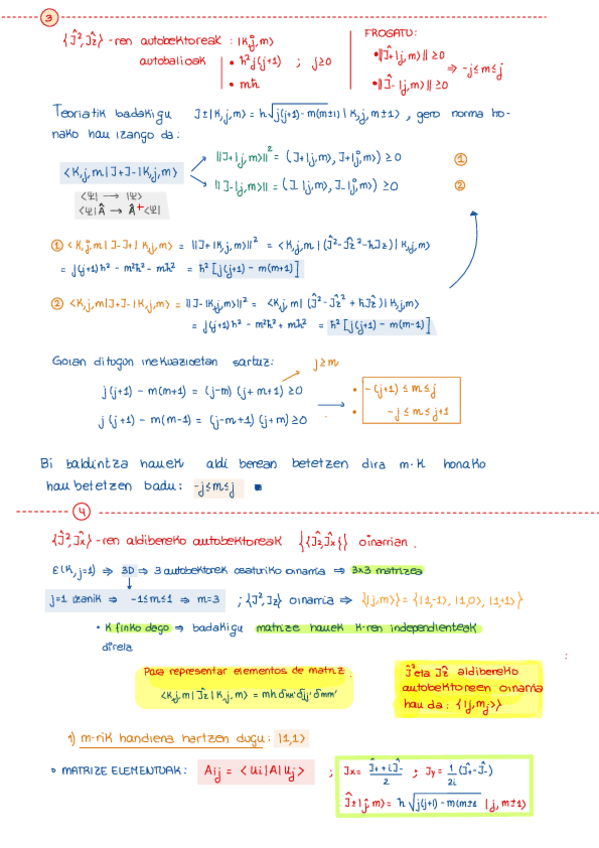 3
{Ĵ², Ĵz}-ren autobektoreak : |K,j,m⟩
autobalioak • ħ²j(j+1) ; j≥0
• mħ
FROGATU:
• ||J+|j,m⟩|| ≥0
• ||Ĵ-|j,m⟩|| ≥0
⇒ -j≤m≤j
Teoriatik badakigu J±|K,j,m⟩ = ħ√j(j+1)-m(m±1) |K,j,m±1⟩ , gero norma ho-
nako hau izango da:
⟨K,j,m|J+J-|K,j,m⟩
||J+|j,m⟩||² = (J+|j,m⟩, J+|j,m⟩) ≥ 0 ①
||J-|j,m⟩|| = (J-|j,m⟩, J-|j,m⟩) ≥0 ②
⟨Ψ| → |Ψ⟩
⟨Ψ|Â → Â⁺⟨Ψ|
① ⟨K,j,m|J-J+|K,j,m⟩ = ||J+|K,j,m⟩||² = ⟨K,j,m|(Ĵ²-Ĵz²-ħJz)|K,j,m⟩
= j(j+1)ħ² - m²ħ² - mħ² = ħ²[j(j+1) - m(m+1)]
② ⟨K,j,m|J+J-|K,j,m⟩ = ||J-|K,j,m⟩||² = ⟨K,j,m|(Ĵ²-Ĵz²+ħĴz)|K,j,m⟩
= j(j+1)ħ² - m²ħ² + mħ² = ħ²[j(j+1) - m(m-1)]
Goian ditugun inekuazioetan sartuz: j≥m
j(j+1) - m(m+1) = (j-m)(j+m+1) ≥0
j(j+1) - m(m-1) = (j-m+1)(j+m) ≥0
• -(j+1) ≤ m ≤ j
• -j ≤ m ≤ j+1
Bi baldintza hauek aldi berean betetzen dira m-k honako
hau betetzen badu: -j≤m≤j ■
4
{Ĵ²,Ĵx}-ren aldibereko autobektoreak {{Ĵz,Ĵx}} oinarrian.
ε(K,j=1) ⇒ 3D ⇒ 3 autobektorek osaturiko oinarria ⇒ 3x3 matrizea
j=1 izanik ⇒ -1≤m≤1 ⇒ m=3 ; {Ĵ²,Jz} oinarria ⇒ {|j,m⟩} = {|1,-1⟩, |1,0⟩, |1,+1⟩}
• K finko dago ⇒ badakigu matrize hauek K-ren independienteak
direla
Para representar elementos de matriz.
⟨K,j,m|Ĵz|K,j,m⟩ = mħ δKK' δjj' δmm'
Ĵ² eta Ĵz aldibereko
autobektoreen oinarria
hau da: {|j,mj⟩}
1) m-rik handiena hartzen dugu: |1,1⟩
• MATRIZE ELEMENTUAK: Aij = ⟨Ui|A|Uj⟩ ; Jx = Ĵ+ + iĴ- / 2 ; Jy = 1/2i (Ĵ+ - Ĵ-)
Ĵ±|j,m⟩ = ħ√j(j+1) - m(m±1 |j,m±1⟩